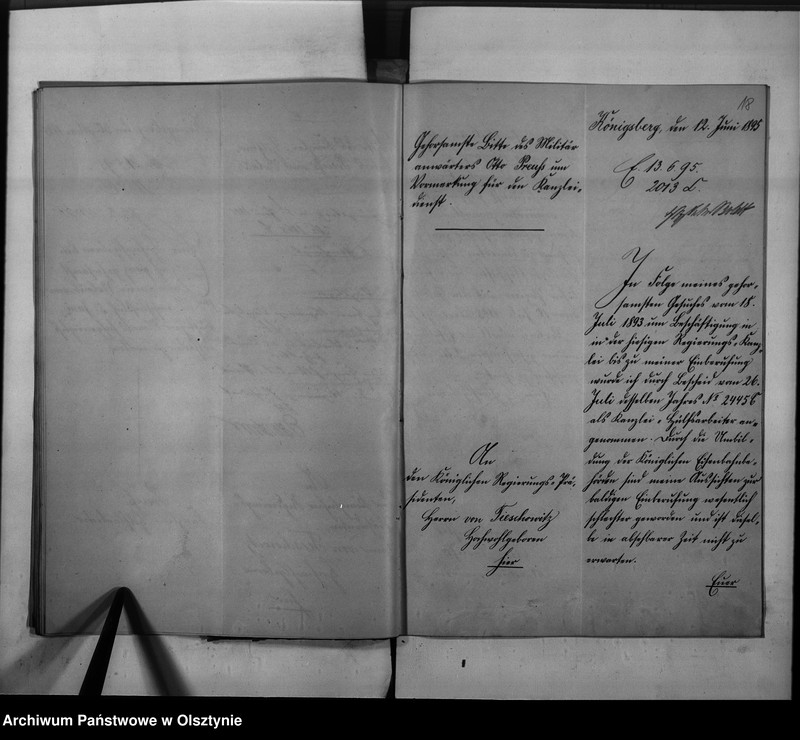 18
Königsberg, den 12. Juni 1895
E. 13. 6. 95.
2013 C.
Gehorsamste Bitte des Militär
anwärters Otto Preuß um
Vormerkung für den Kanzlei-
dienst.
In Folge meines gehor-
samsten Gesuches vom 18.
Juli 1893 um Beschäftigung in
in der hiesigen Regierungs-Kanz-
lei bis zu meiner Einberufung
wurde ich durch Bescheid vom 26.
Juli desselben Jahres No 2445 C
als Kanzlei-Hülfsarbeiter an-
genommen. Durch die Umbil-
dung der Königlichen Eisenbahnbe-
hörden sind meine Aussichten zur
baldigen Einberufung wesentlich
schlechter geworden und ist diesel-
be in absehbarer Zeit nicht zu
erwarten.
Euer
An
den Königlichen Regierungs-Prä-
sidenten,
Herrn von Tieschowitz
Hochwohlgeboren
hier
Archiwum Państwowe w Olsztynie